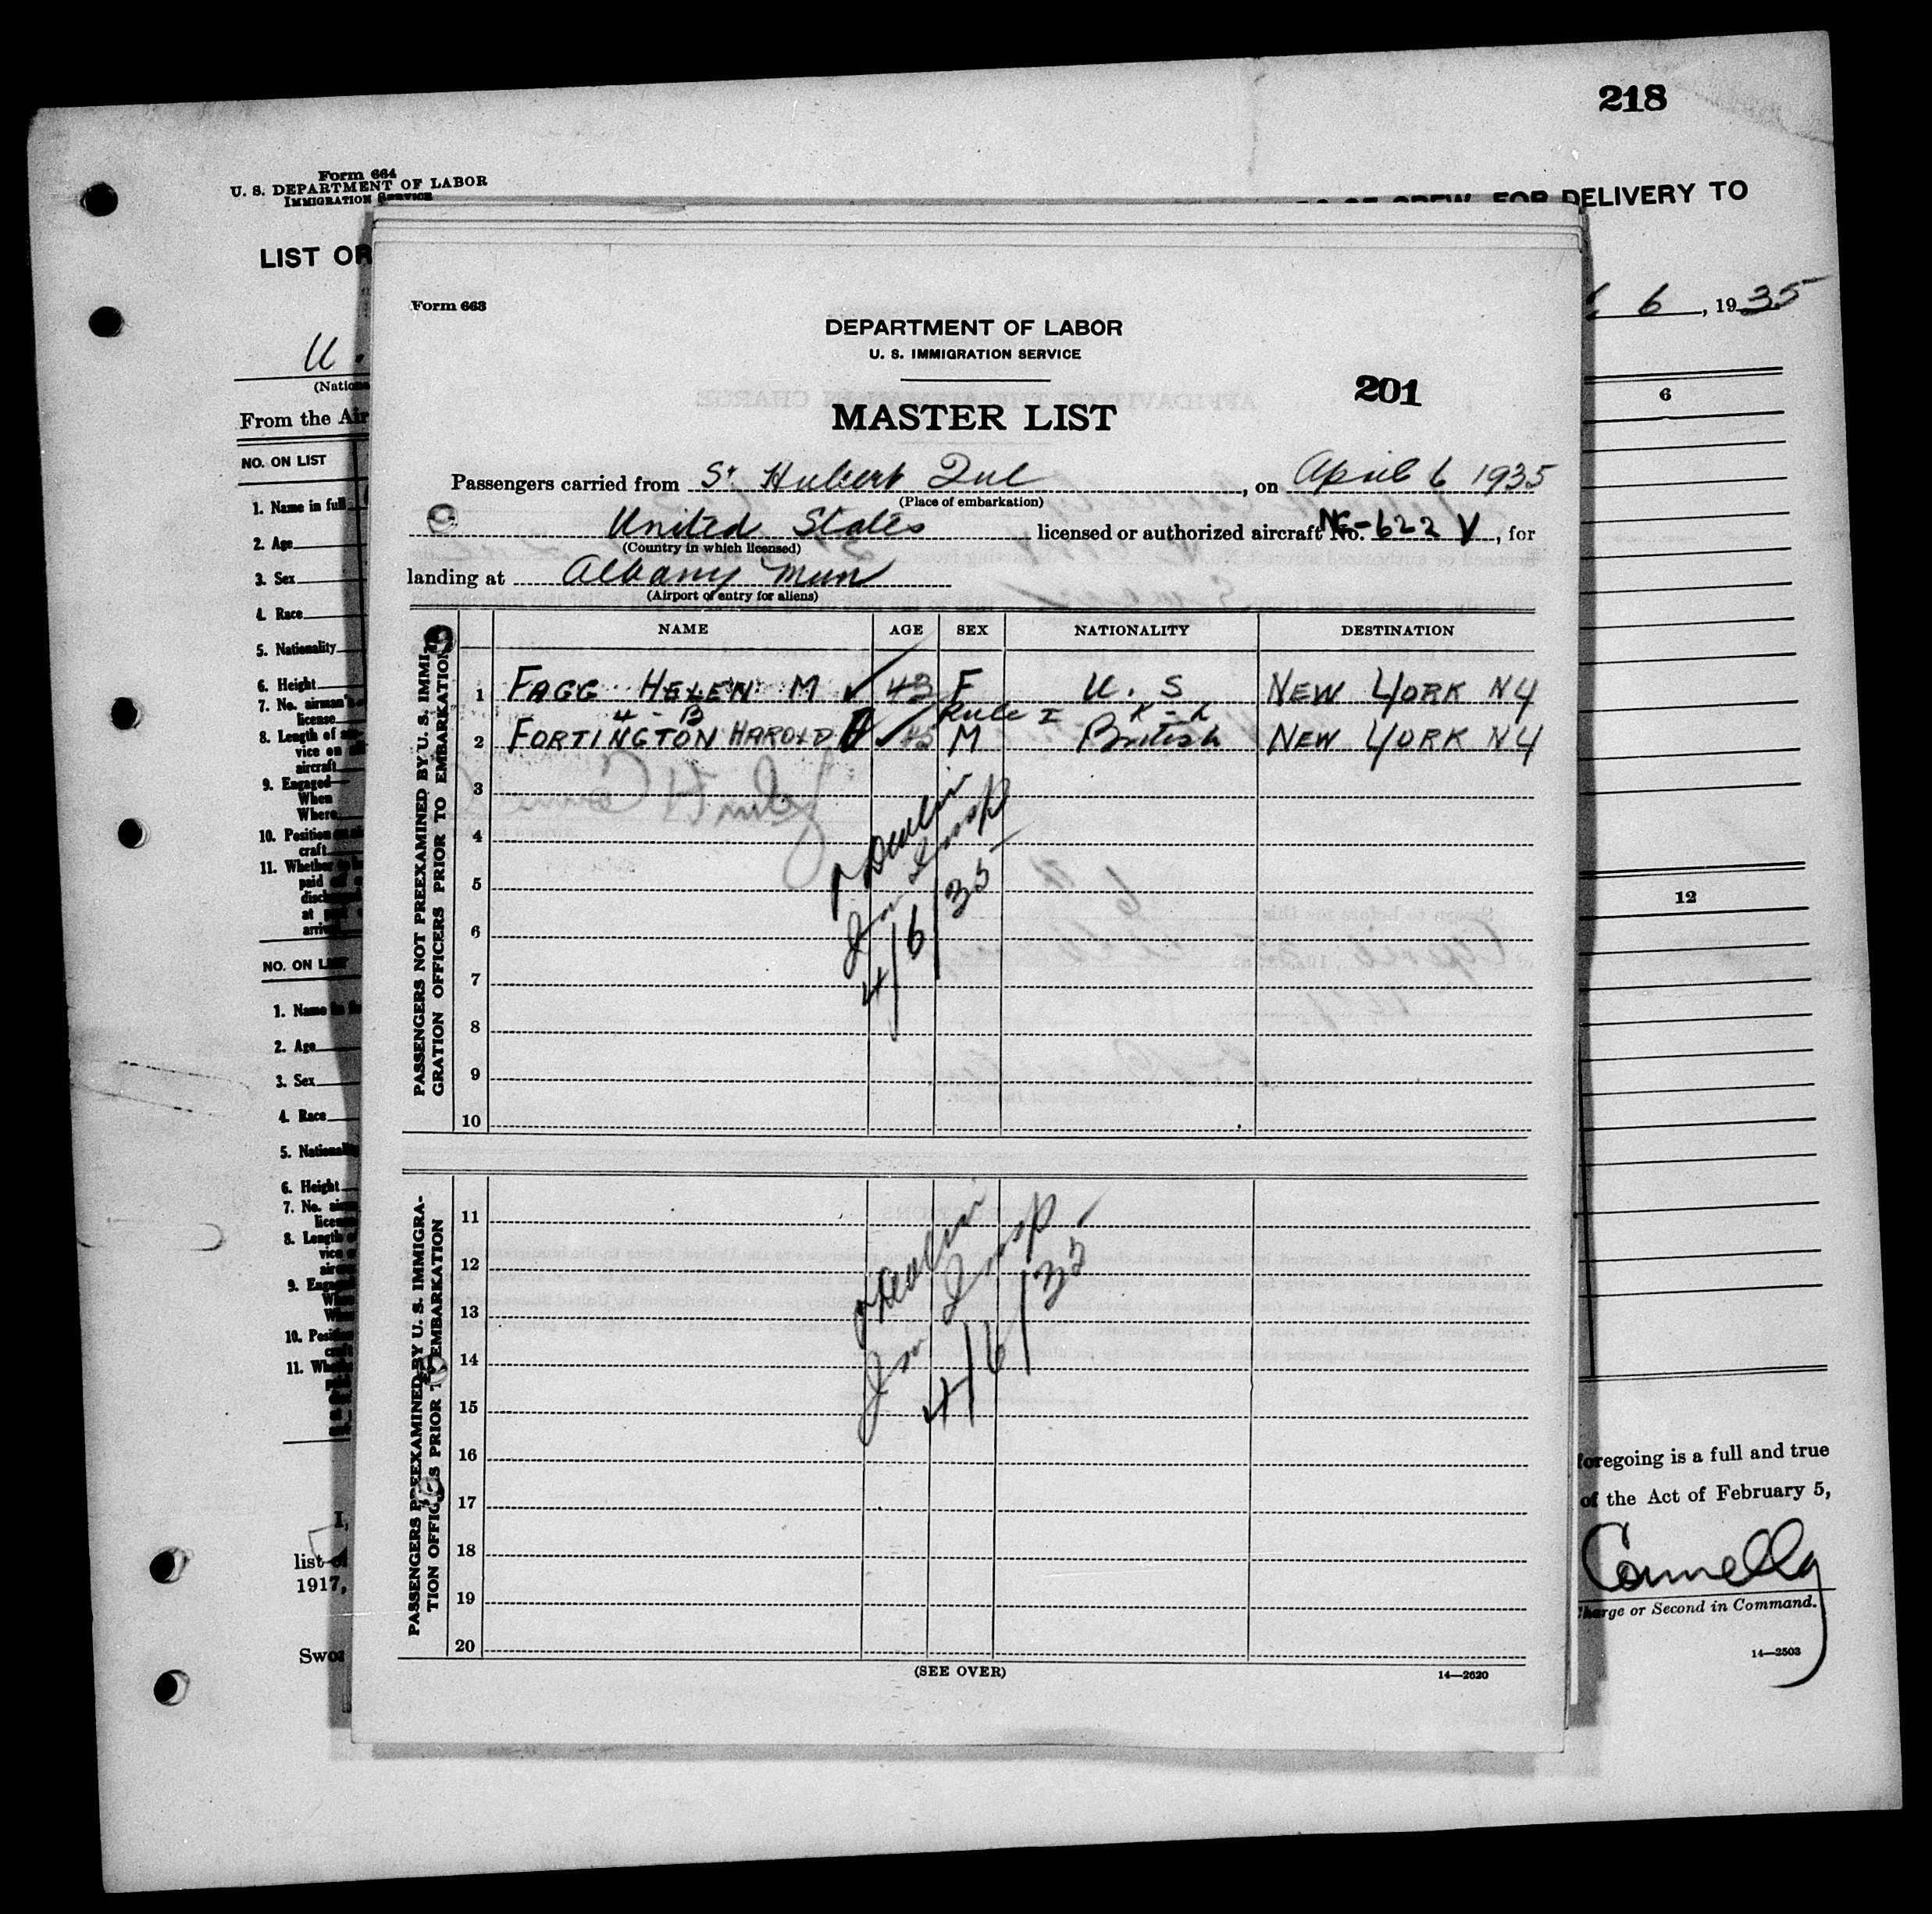 218
Form 664
U. S. DEPARTMENT OF LABOR
IMMIGRATION SERVICE
CREW, FOR DELIVERY TO
LIST OR
6, 1935
U.
From the Air
NO. ON LIST
1. Name in full
2. Age
3. Sex
4. Race
5. Nationality
6. Height
7. No. airman's
license
8. Length of
vice on
aircraft
9. Engaged
When
Where
10. Position
craft
11. Whether
paid
at
NO. ON
1. Name
2. Age
3. Sex
4. Race
5. Nationality
6. Height
7. No.
8. Length
9.
10.
11.
I,
list
1917,
6
12
foregoing is a full and true
of the Act of February 5,
Connelly
Charge or Second in Command.
14—2503
Form 663
DEPARTMENT OF LABOR
U. S. IMMIGRATION SERVICE
201
MASTER LIST
Passengers carried from St Hubert Que, on April 6 1935
(Place of embarkation)
United States licensed or authorized aircraft No. NC-622 V, for
(Country in which licensed)
landing at Albany Mun
(Airport of entry for aliens)
NAME AGE SEX NATIONALITY DESTINATION
PASSENGERS NOT PREEXAMINED BY U. S. IMMI-
GRATION OFFICERS PRIOR TO EMBARKATION
1 FAGG HELEN M 43 F U. S NEW YORK NY
4 - B Rule I
2 FORTINGTON HAROLD A 45 M British NEW YORK NY
3
4
5
6
7
8
9
10
Devlin
Imm Insp
4/6/35
PASSENGERS PREEXAMINED BY U. S. IMMIGRA-
TION OFFICERS PRIOR TO EMBARKATION
11
12
13
14
15
16
17
18
19
20
Devlin
Imm Insp
4/6/35
(SEE OVER)
14—2620